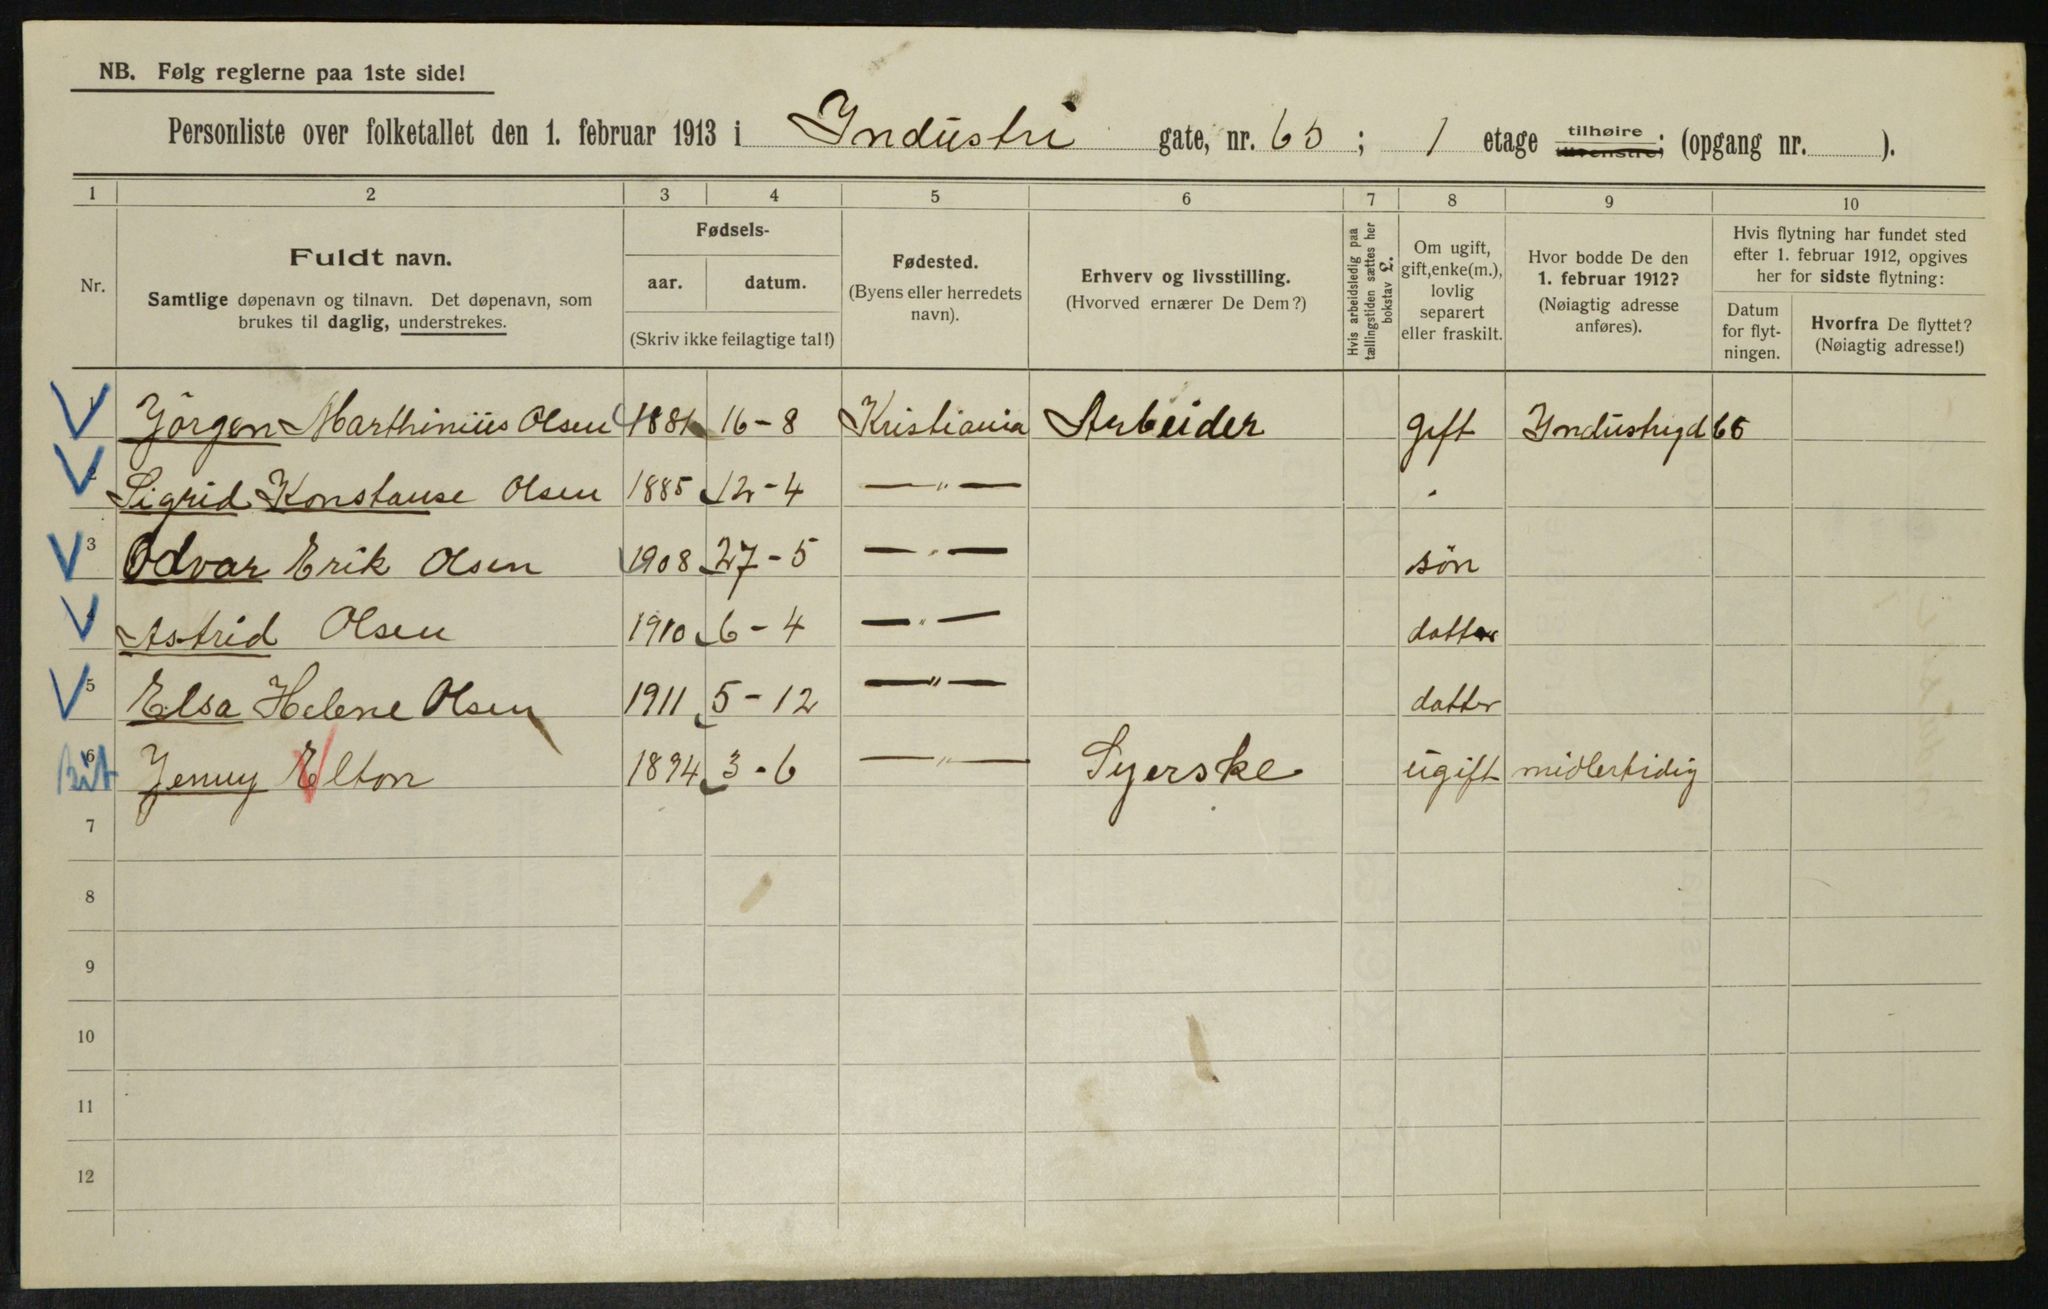 NB. Følg reglerne paa 1ste side!
Personliste over folketallet den 1. februar 1913 i Industri gate, nr. 65; 1 etage tilhøire tilvenstre; (opgang nr. ).
1 2 3 4 5 6 7 8 9 10
Nr.
Fuldt navn.
Samtlige døpenavn og tilnavn. Det døpenavn, som
brukes til daglig, understrekes.
Fødsels-
aar. datum.
(Skriv ikke feilagtige tal!)
Fødested.
(Byens eller herredets
navn).
Erhverv og livsstilling.
(Hvorved ernærer De Dem?)
Hvis arbeidsledig paa
tællingstiden sættes her
bokstav L.
Om ugift,
gift, enke(m.),
lovlig
separert
eller fraskilt.
Hvor bodde De den
1. februar 1912?
(Nøiagtig adresse
anføres).
Hvis flytning har fundet sted
efter 1. februar 1912, opgives
her for sidste flytning:
Datum
for flyt-
ningen.
Hvorfra De flyttet?
(Nøiagtig adresse!)
1 Jörgen Marthinius Olsen 1881 16-8 Kristiania Arbeider gift Industrigd 65
2 Sigrid Konstanse Olsen 1885 12-4 — " —
3 Odvar Erik Olsen 1908 27-5 — " — sön
4 Astrid Olsen 1910 6-4 — " — datter
5 Elsa Helene Olsen 1911 5-12 — " — datter
6 Jenny Elton 1894 3-6 — " — Syerske ugift midlertidig
7
8
9
10
11
12